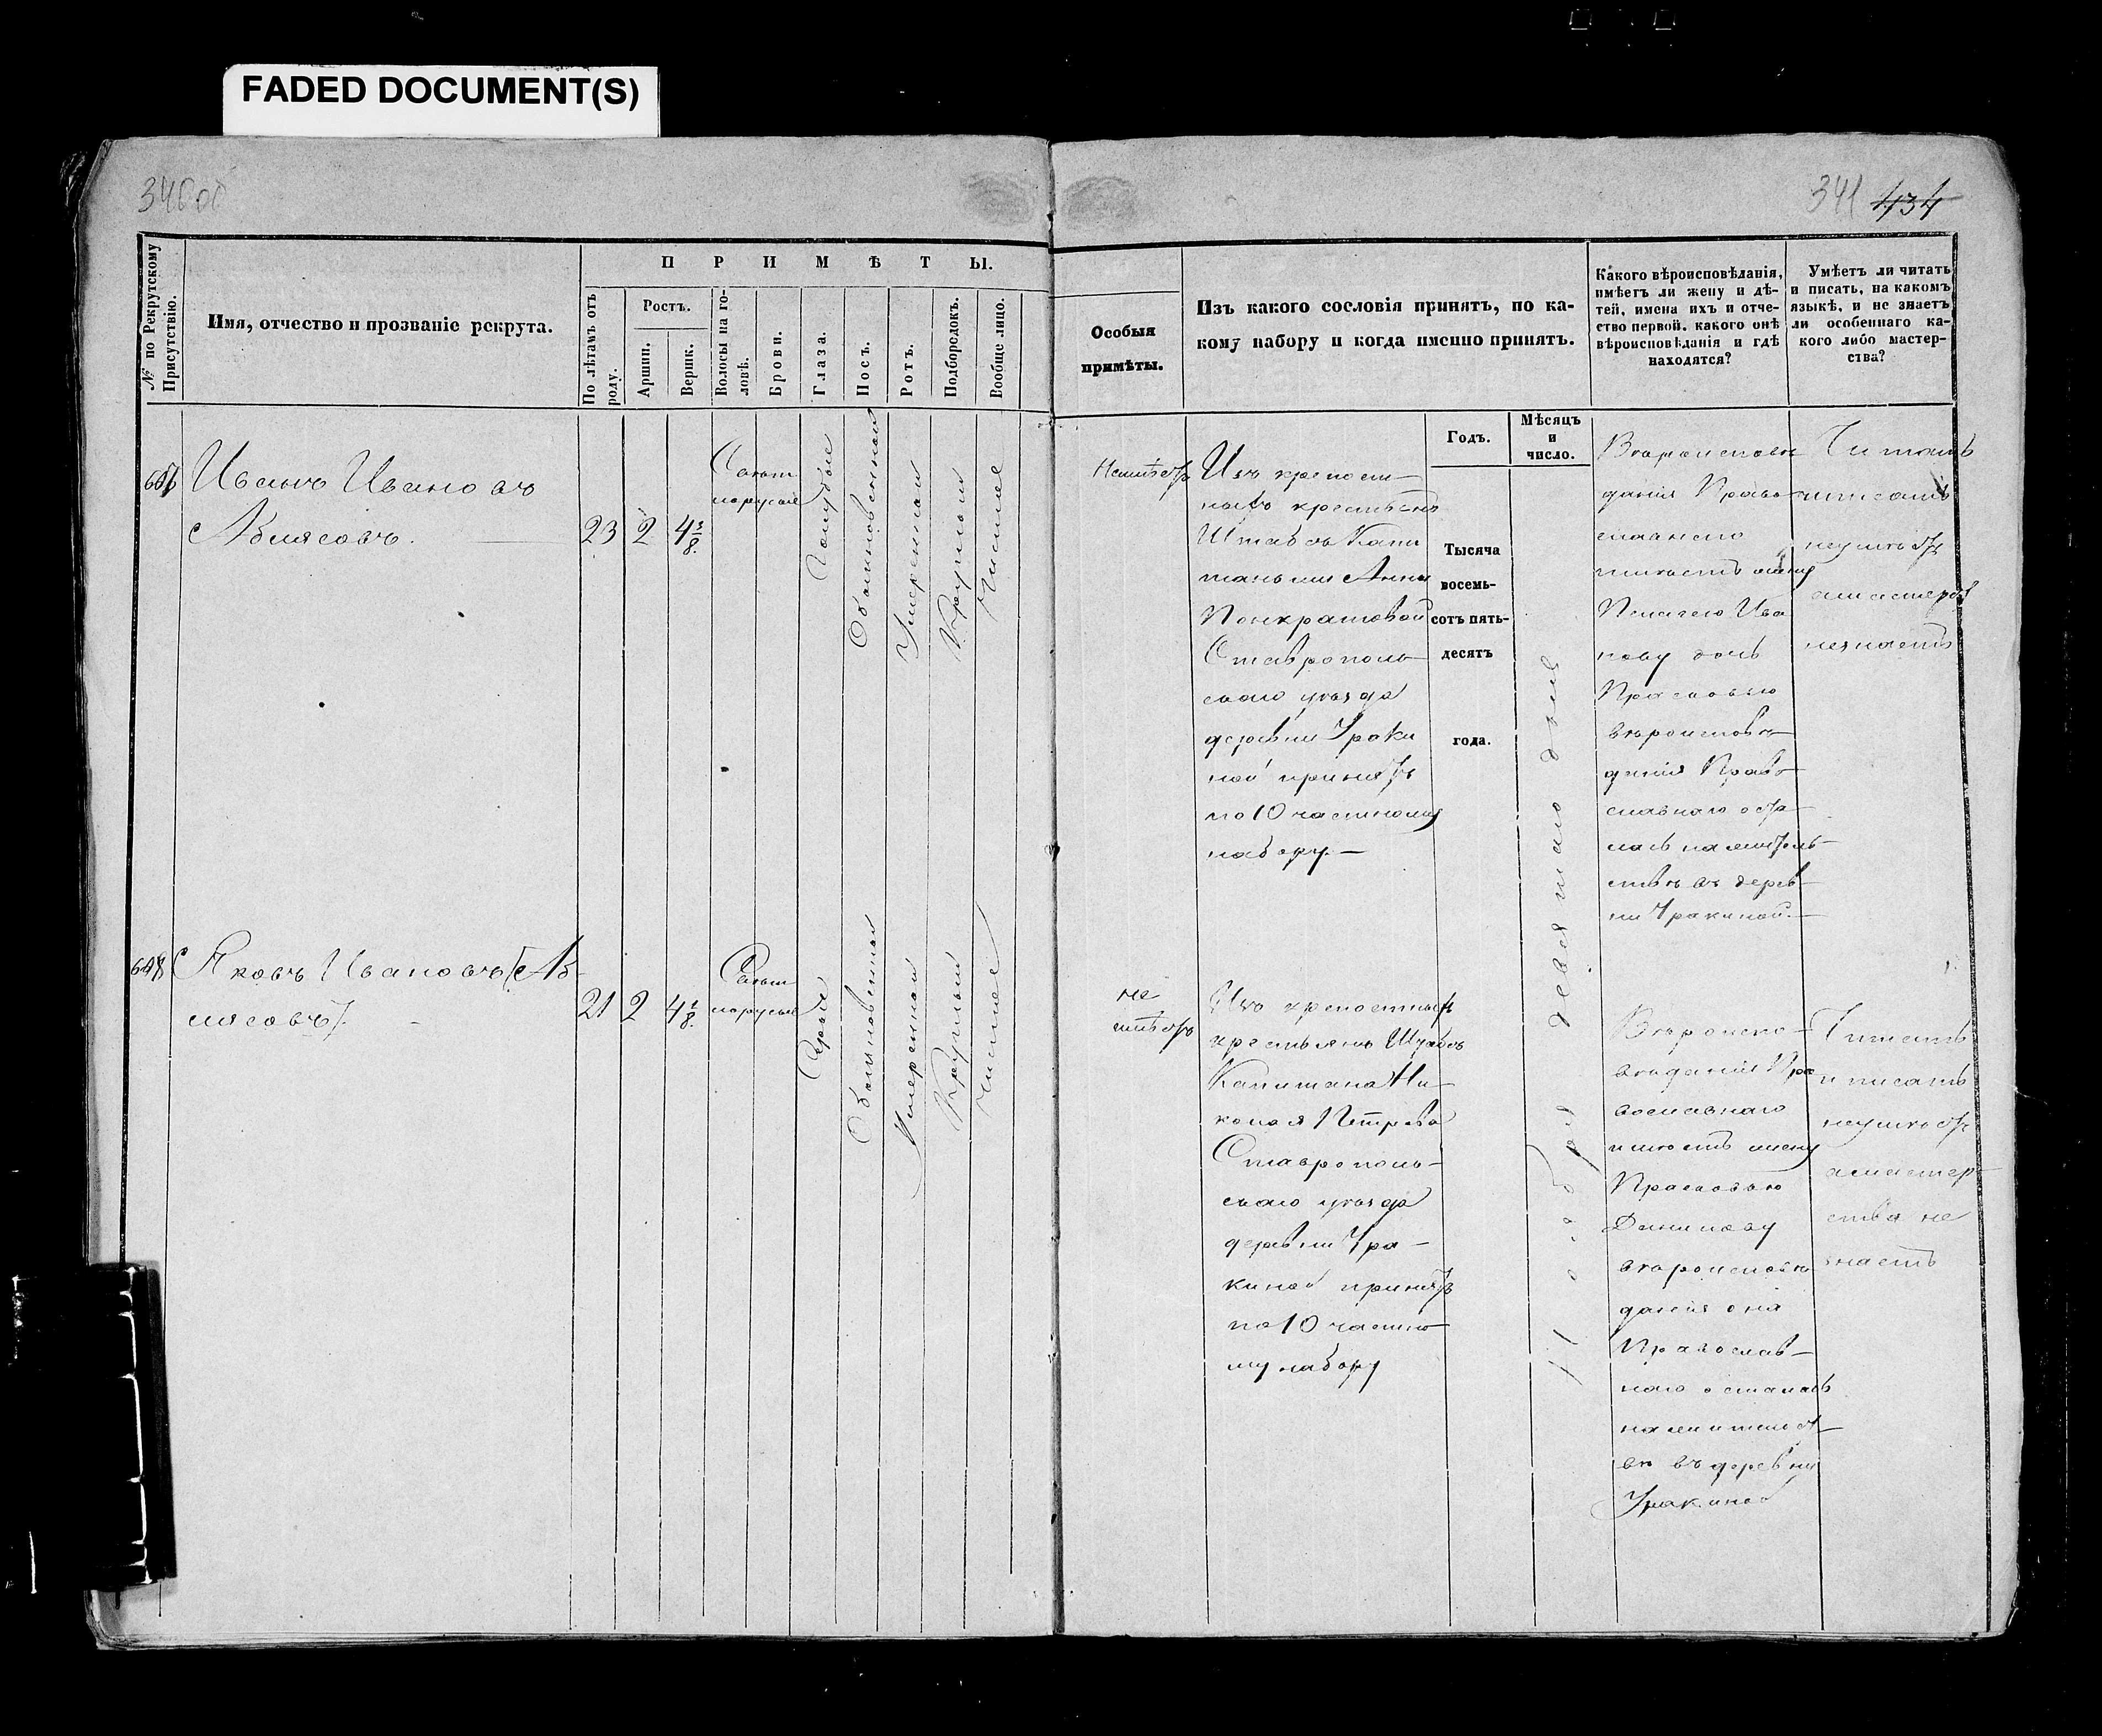 FADED DOCUMENT(S)
340 об
341 434
№ по Рекрутскому Присутствію.
Имя, отчество и прозваніе рекрута.
ПРИМѢТЫ.
По лѣтамъ отъ роду.
Ростъ.
Аршин.
Вершк.
Волосы на головѣ.
Брови.
Глаза.
Носъ.
Ротъ.
Подбородокъ.
Вообще лицо.
Особыя
примѣты.
Изъ какого сословія принятъ, по ка-
кому набору и когда именно принятъ.
Какого вѣроисповѣданія,
имѣетъ ли жену и дѣ-
тей, имена ихъ и отче-
ство первой, какого онѣ
вѣроисповѣданія и гдѣ
находятся?
Умѣетъ ли читать
и писать, на какомъ
языкѣ, и не знаетъ
ли особеннаго ка-
кого либо мастер-
ства?
Годъ.
Мѣсяцъ
и
число.
Тысяча
восемь-
сотъ пять-
десятъ
года.
Иванъ Ивановъ
Аблясовъ.
23 2 4 3/8
Свѣтло
русые
Голубые
Обыкновенной
Умеренной
Круглой
Чистое
Неимѣетъ
Изъ крепост-
ныхъ крестьянъ
Штабсъ Капи
танъши Анны
Понкратовой
Ставрополь-
скаго уѣзда
деревни Ураки
ной принятъ
по 10 частному
набору.—
девятаго дня
Вѣроисповѣ
данія Право-
славнаго
имѣетъ жену
Пелагею Ива
нову дочь
Прасковью
вѣроисповѣ-
данія Право-
славнаго оста-
лась на житель-
ствѣ въ дерев-
ни Уракиной.—
Читать
иписать
неумѣетъ
амастерст
незнаетъ
648 Яковъ Ивановъ (Аб-
лясовъ).
21 2 4 1/8
Свѣтло
русые
Серые
Обыкновенной
Умеренной
Круглый
Чистое
не
имѣетъ
Изъ крепостныхъ
крестьянъ Штабсъ
Капитана Ни-
колая Петрова
Ставрополь-
скаго уѣзда
деревни Ура-
киной принятъ
по 10 частно-
му набору
Вѣроиспо-
вѣданія Пра
вославнаго
имѣетъ жену
Прасковью
Данилову
вѣроисповѣ
данія она
Православ-
наго осталась
на жительст-
вѣ въ деревни
Уракиной
Читать
и писать
неумѣетъ
амастер-
ства не
знаетъ